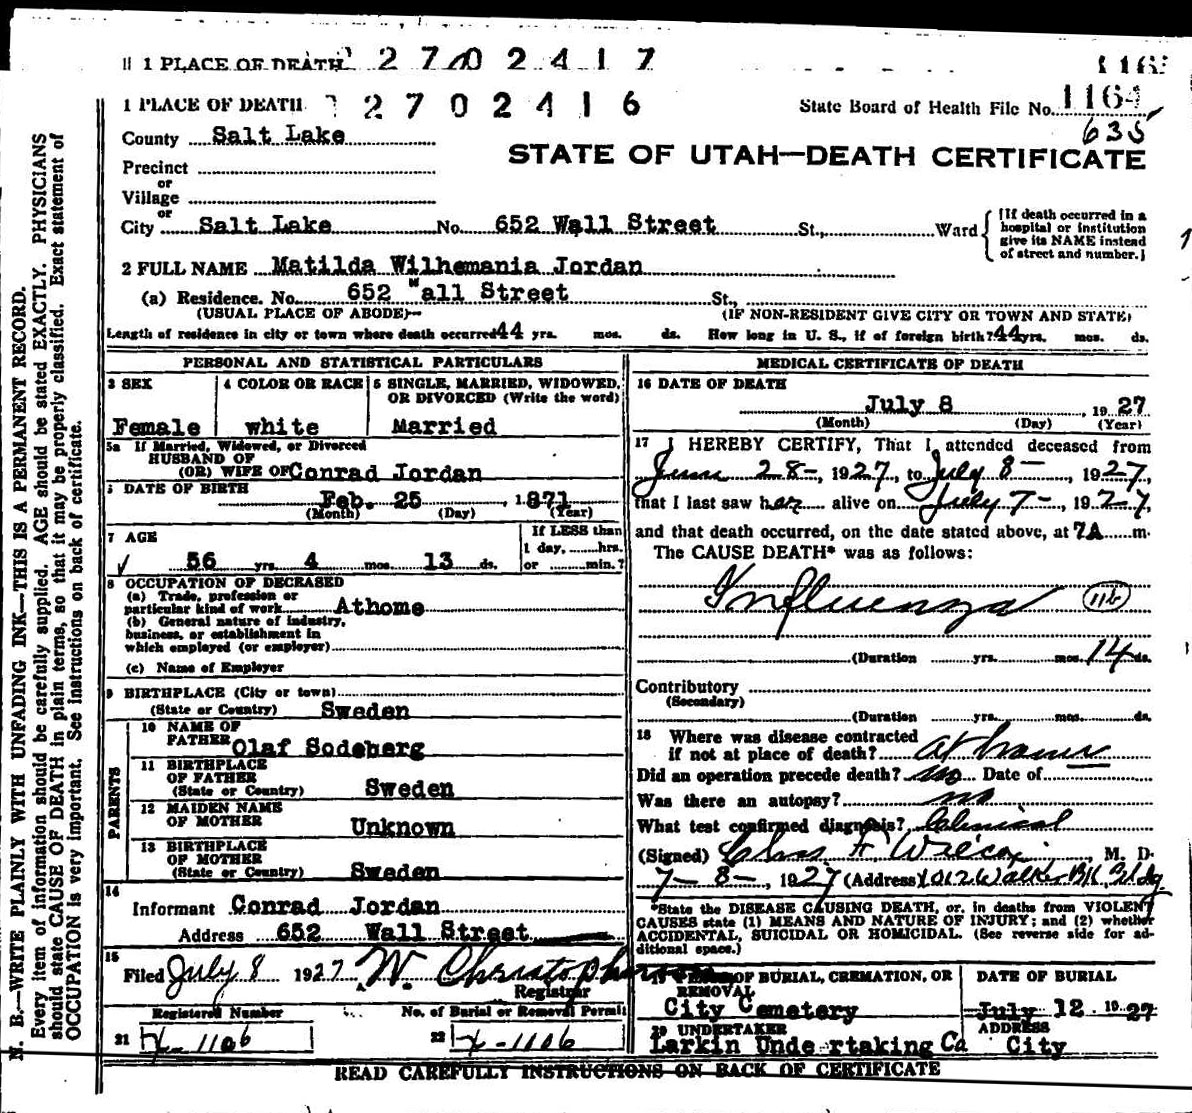 1 PLACE OF DEATH 2 7 0 2 4 1 7
1 PLACE OF DEATH 2 7 0 2 4 1 6
State Board of Health File No. 1164
635
County Salt Lake
STATE OF UTAH—DEATH CERTIFICATE
Precinct
or
Village
or
City Salt Lake No. 652 Wall Street St., Ward
[If death occurred in a
hospital or institution
give its NAME instead
of street and number.]
2 FULL NAME Matilda Wilhemania Jordan
(a) Residence. No. 652 Wall Street St.,
(USUAL PLACE OF ABODE)
(IF NON-RESIDENT GIVE CITY OR TOWN AND STATE)
Length of residence in city or town where death occurred 44 yrs. mos. ds. How long in U. S., if of foreign birth? 44 yrs. mos. ds.
PERSONAL AND STATISTICAL PARTICULARS
3 SEX
Female
4 COLOR OR RACE
white
5 SINGLE, MARRIED, WIDOWED,
OR DIVORCED (Write the word)
Married
5a If Married, Widowed, or Divorced
HUSBAND OF
(OR) WIFE OF Conrad Jordan
DATE OF BIRTH
Feb. 25 , 1871
(Month) (Day) (Year)
7 AGE
56 yrs. 4 mos. 13 ds.
If LESS than
1 day, hrs.
or min.?
8 OCCUPATION OF DECEASED
(a) Trade, profession or
particular kind of work Athome
(b) General nature of industry,
business, or establishment in
which employed (or employer)
(c) Name of Employer
9 BIRTHPLACE (City or town)
(State or Country) Sweden
PARENTS
10 NAME OF
FATHER Olaf Sodeberg
11 BIRTHPLACE
OF FATHER
(State or Country) Sweden
12 MAIDEN NAME
OF MOTHER Unknown
13 BIRTHPLACE
OF MOTHER
(State or Country) Sweden
14
Informant Conrad Jordan
Address 652 Wall Street
15
Filed July 8 1927 W. Christopherson
Registrar
Registered Number
21 X-1106
No. of Burial or Removal Permit
22 X-1106
MEDICAL CERTIFICATE OF DEATH
16 DATE OF DEATH
July 8 , 1927
(Month) (Day) (Year)
17 I HEREBY CERTIFY, That I attended deceased from
June 28-, 1927, to July 8-, 1927,
that I last saw her alive on July 7-, 1927,
and that death occurred, on the date stated above, at 7A m.
The CAUSE DEATH* was as follows:
Influenza 11b
(Duration yrs. mos. 14 ds.
Contributory
(Secondary)
(Duration yrs. mos. ds.
18 Where was disease contracted
if not at place of death? at home
Did an operation precede death? no Date of
Was there an autopsy? no
What test confirmed diagnosis? Clinical
(Signed) Chas F. Wilcox, M. D.
7-8-, 1927 (Address) 1012 Walker Bk Bldg
*State the DISEASE CAUSING DEATH, or, in deaths from VIOLENT
CAUSES state (1) MEANS AND NATURE OF INJURY; and (2) whether
ACCIDENTAL, SUICIDAL OR HOMICIDAL. (See reverse side for ad-
ditional space.)
19 PLACE OF BURIAL, CREMATION, OR
REMOVAL
City Cemetery
DATE OF BURIAL
July 12 1927
20 UNDERTAKER
Larkin Undertaking Co
ADDRESS
City
READ CAREFULLY INSTRUCTIONS ON BACK OF CERTIFICATE
N. B.—WRITE PLAINLY WITH UNFADING INK—THIS IS A PERMANENT RECORD.
Every item of information should be carefully supplied. AGE should be stated EXACTLY. PHYSICIANS
should state CAUSE OF DEATH in plain terms, so that it may be properly classified. Exact statement of
OCCUPATION is very important. See instructions on back of certificate.